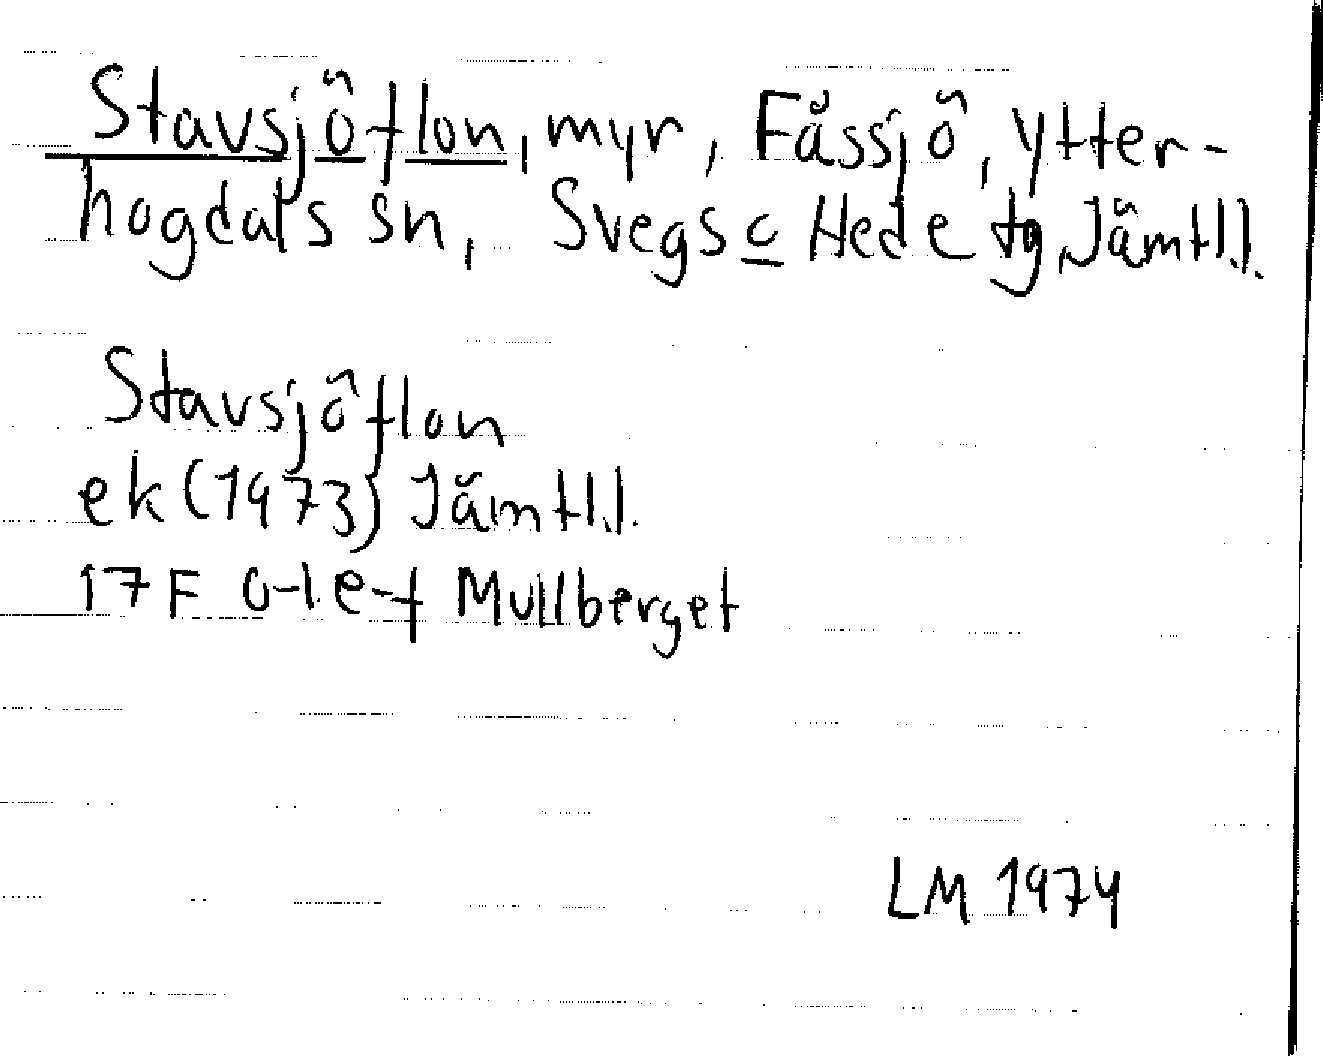 Stavsjöflon, myr, Fåssjö, Ytter-
hogdals sn, Svegs c Hede tg, Jämtl.l.
Stavsjöflon
ek (1973) Jämtl.l.
17F 0-1 e-f Mullberget
LM 1974